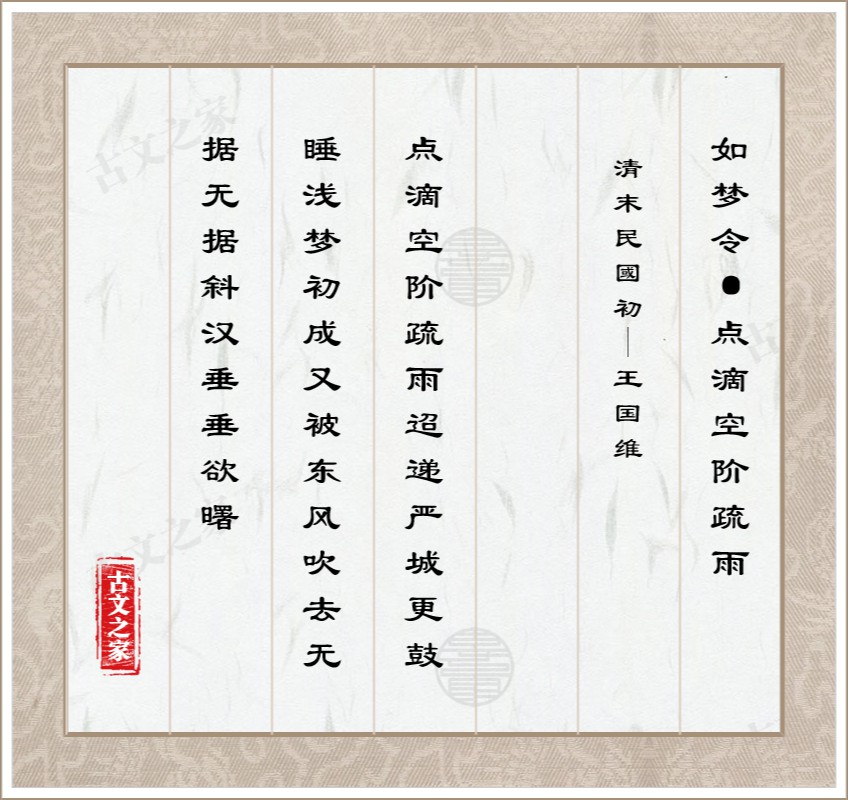 如梦令●点滴空阶疏雨
清末民國初—王国维
点滴空阶疏雨迢递严城更鼓
睡浅梦初成又被东风吹去无
据无据斜汉垂垂欲曙
古文之家
古文之家
古文之家